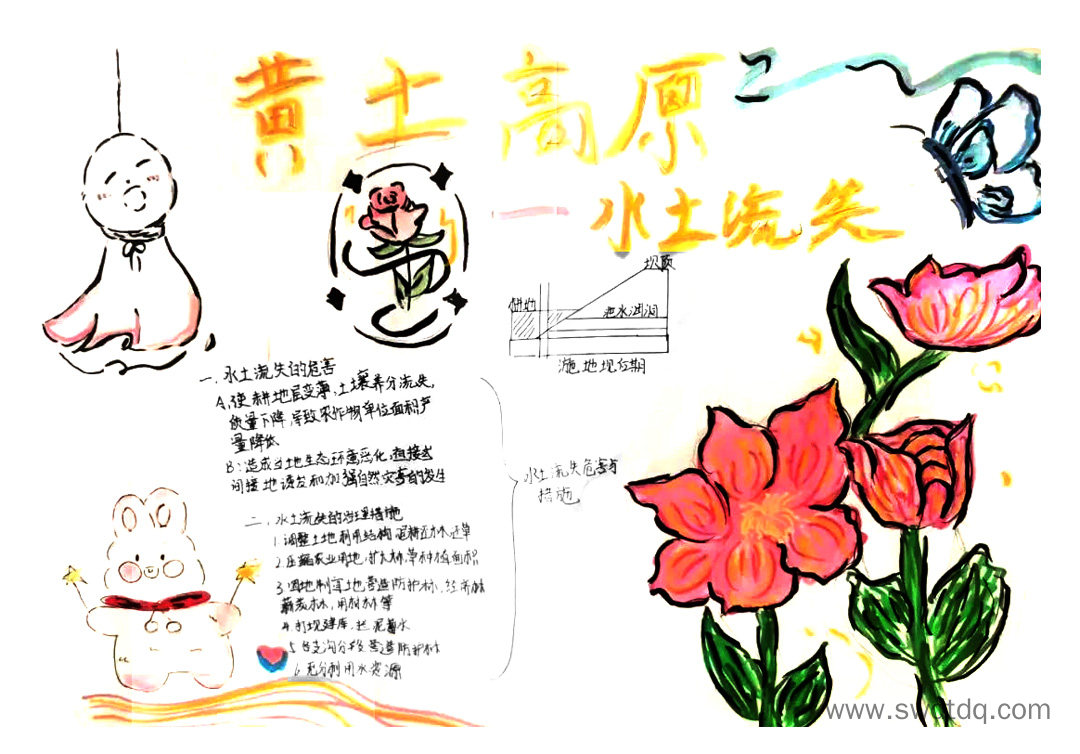 黄土高原
一水土流失
坝顶
泄水涵洞
施地坝后期
一、水土流失的危害
A、使耕地层变薄,土壤养分流失,
质量下降,导致农作物单位面积产
量降低
B:造成当地生态环境恶化,直接或
间接地诱发和加强自然灾害的发生
二、水土流失的治理措施
1.调整土地利用结构,退耕还林还草
2.压缩农业用地,扩大林草种植面积
3.因地制宜地营造防护林、经济林
薪炭林,用材林等
4.打坝建库,拦泥蓄水
5.支沟分段营造防护林
6.充分利用水资源
水土流失危害与
措施
www.swdtdq.com